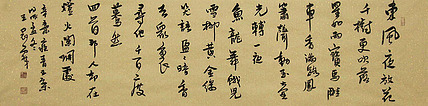 東風夜放花
千樹更吹落
星如雨寶馬雕
車香滿路鳳
簫聲動玉壺
光轉一夜
魚龍舞蛾兒
雪柳黃金縷
笑語盈盈暗香
尋他千百度
驀然
回首那人却在
燈火闌珊處
辛棄疾青玉案